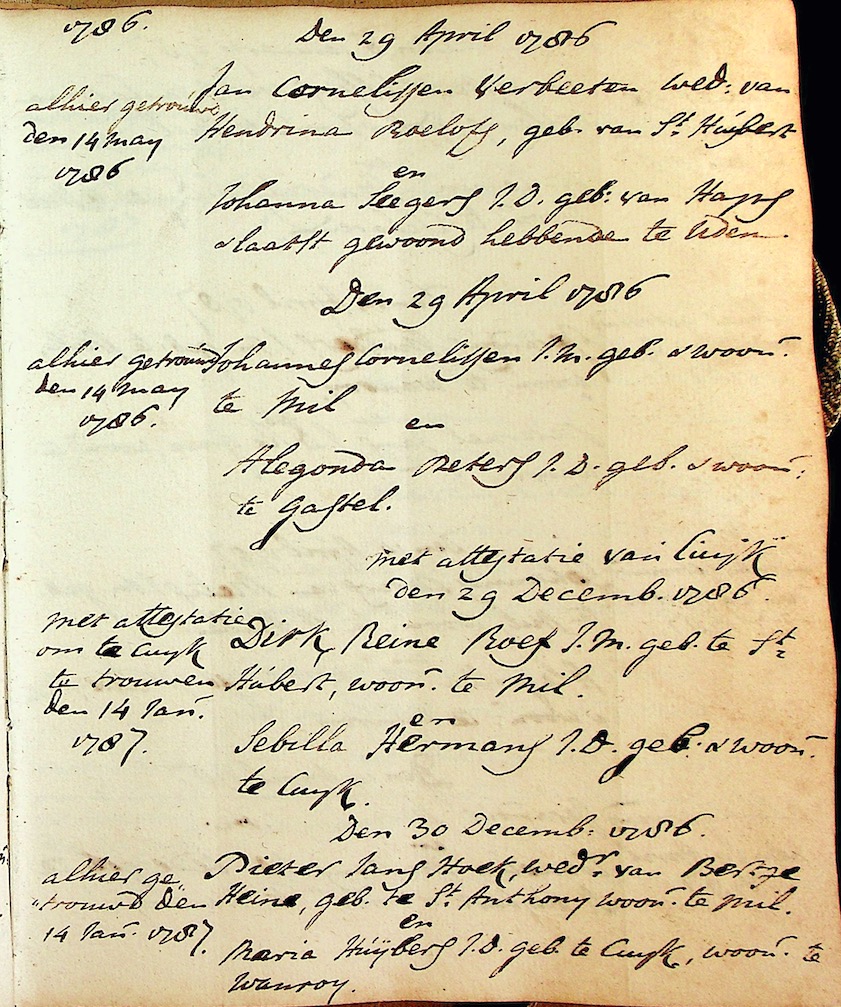 1786.
Den 29 April 1786
Jan Cornelissen Verbeeten wed: van
alhier getrouwd
Hendrina Roelofs, geb. van St. Hubert
den 14 may
1786
en
Johanna Seegers J.D. geb: van Haps
& laatst gewoond hebbende te Uden.
Den 29 April 1786
alhier getrouwd
Johannes Cornelissen J.M. geb. & woon̄.
den 14 may
te Mil
1786.
en
Alegonda Peters J.D. geb. & woon̄:
te Gastel.
met attestatie van Cuijk
den 29 Decemb. 1786.
met attestatie
Dirk Reine Roef J.M. geb. te St.
om te Cuyk
te trouwen
Hubert, woon̄. te Mil.
den 14 Jan̄.
en
1787.
Sebilla Hermans J.D. geb. & woon̄.
te Cuyk.
Den 30 Decemb: 1786.
Pieter Jans Hoek, wedr. van
alhier ge"
Heine, geb. te St. Anthony woon̄. te Mil.
"trouwd den
en
14 Jan̄. 1787.
Maria Huÿbers J.D. geb te Cuyk, woon̄. te
Wanroy.